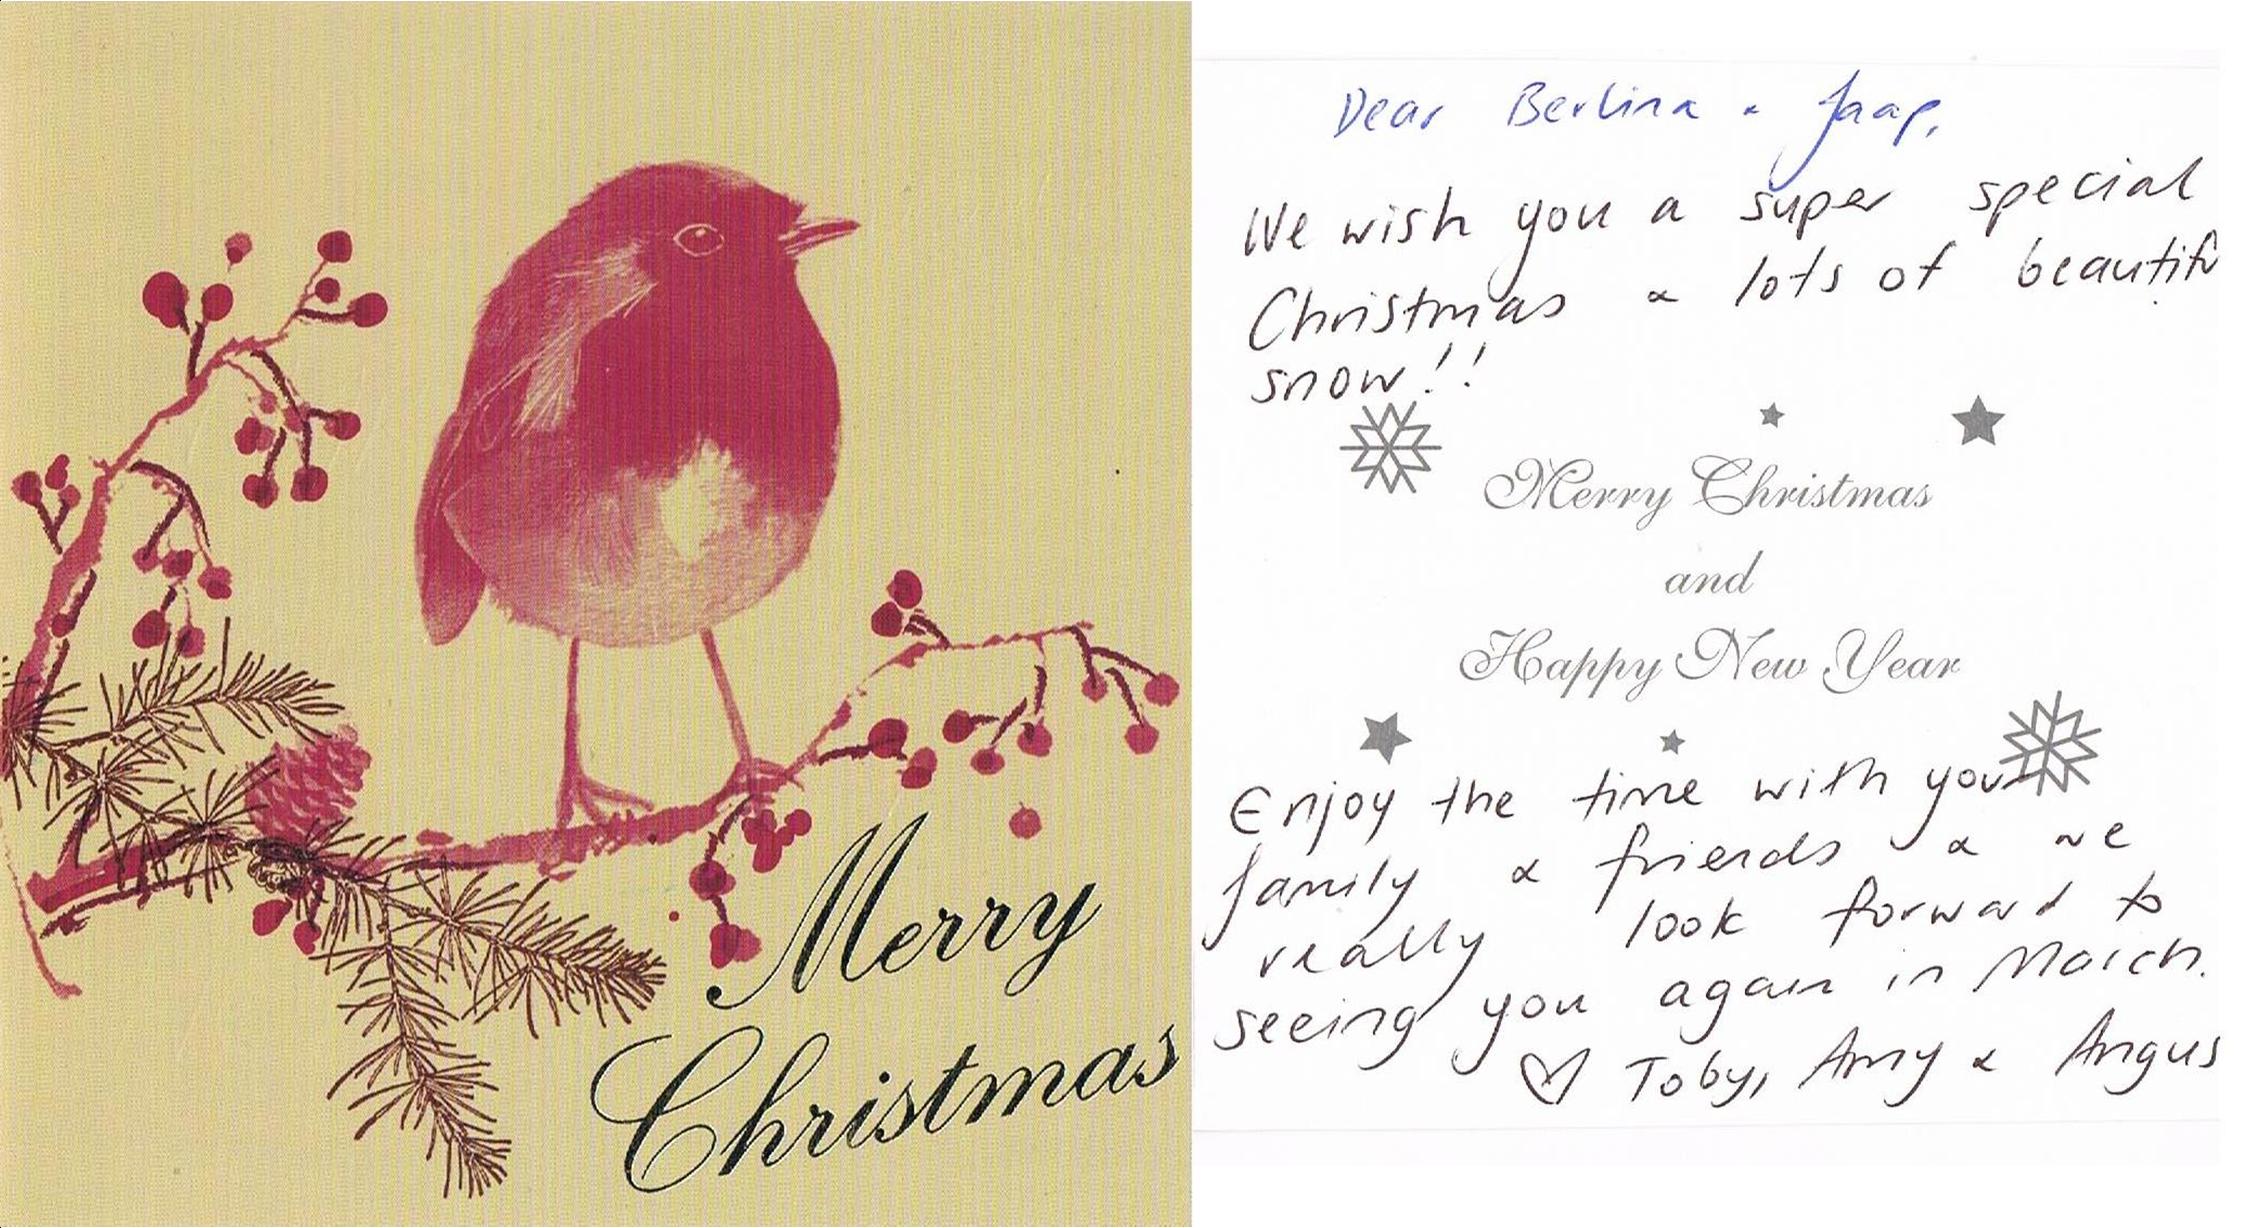 Merry
Christmas
Dear Berlina & Jaap,
We wish you a super special
Christmas & lots of beautifu
snow!!
Merry Christmas
and
Happy New Year
Enjoy the time with your
family & friends & we
really look forward to
seeing you again in March.
♡ Toby, Amy & Angus